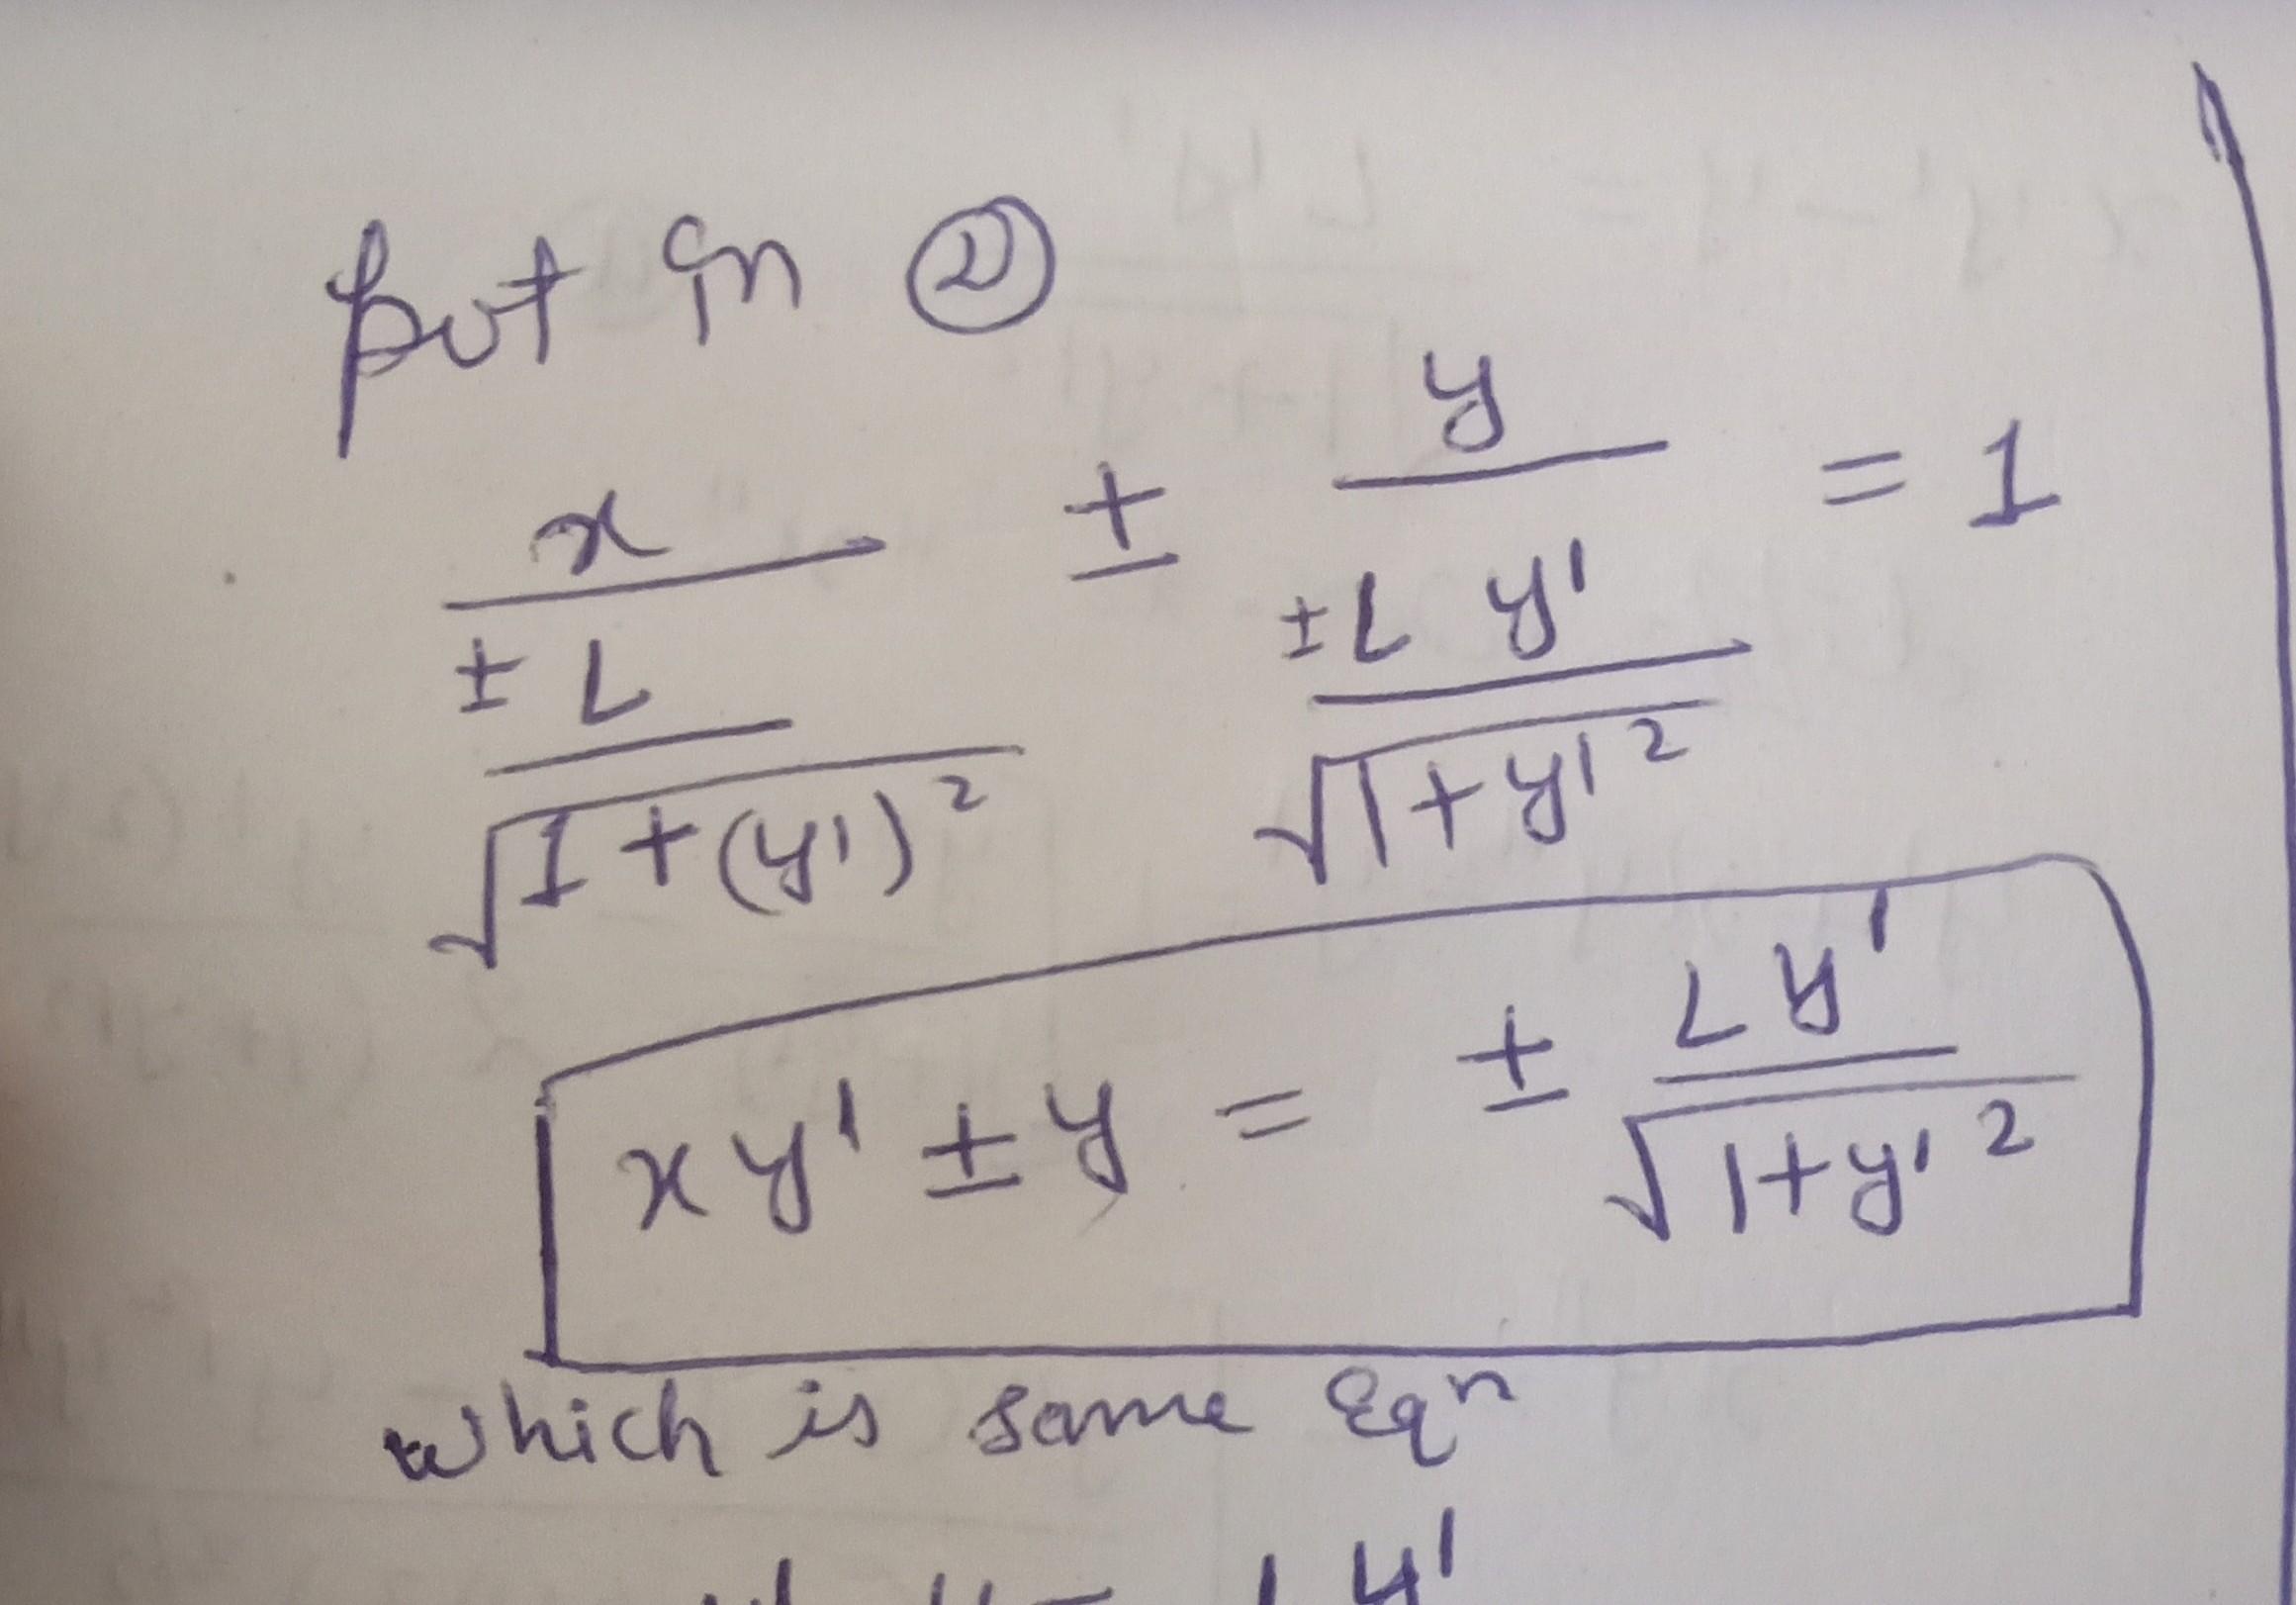 put in ②
x/(±L/√(1+(y')²)) ± y/(±Ly'/√(1+y'²)) = 1
xy' ± y = ± Ly'/√(1+y'²)
which is same Eqⁿ